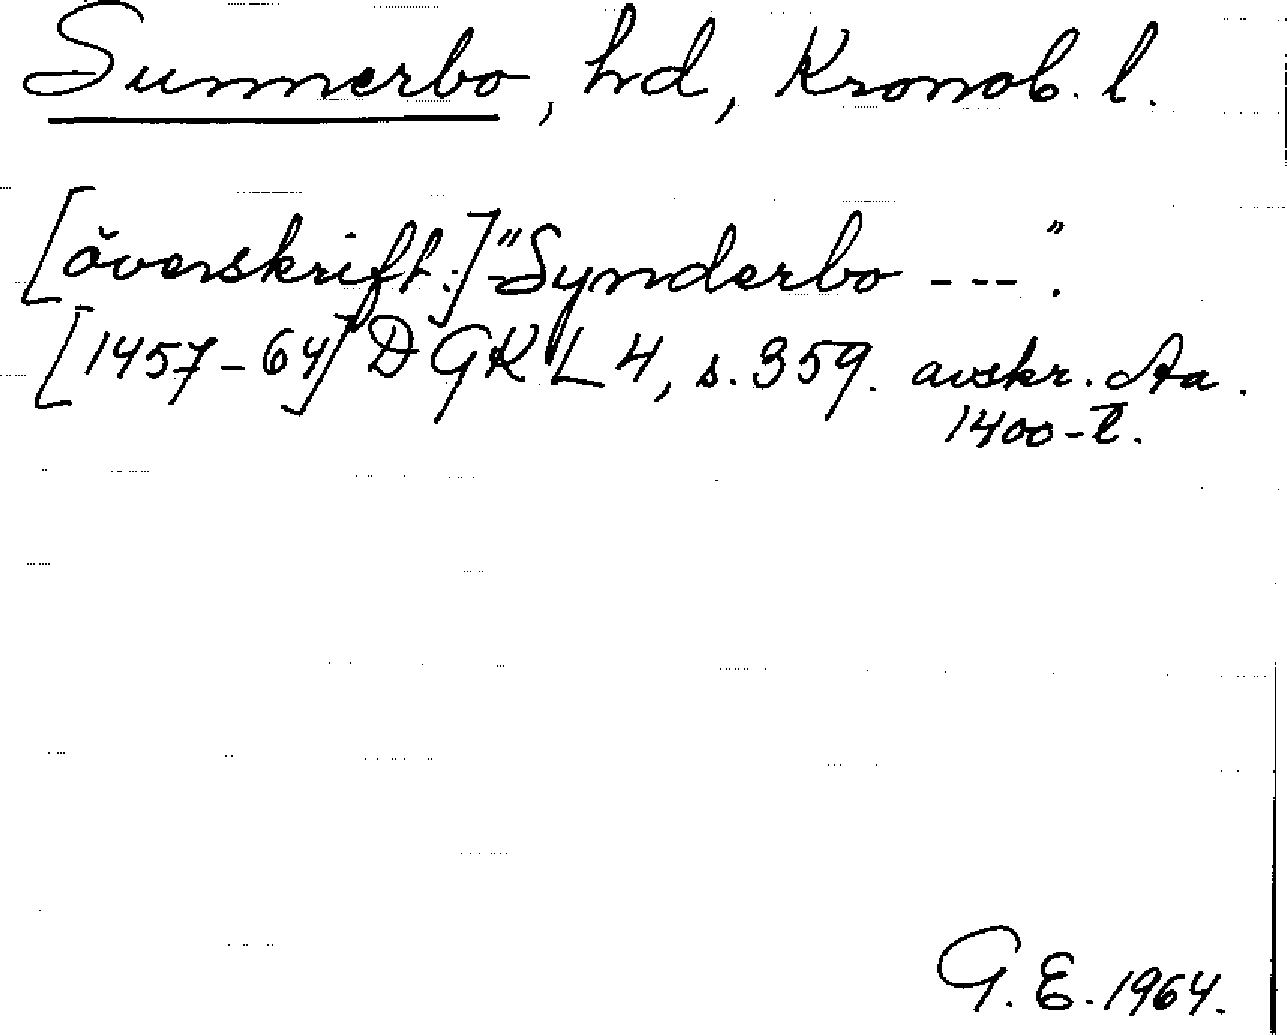 Sunnerbo, hd, Kronob. l.
[överskrift:] "Synderbo ---".
[1457-64] DGKL 4, s. 359. avskr. Aa.
1400-t.
G. E. 1964.